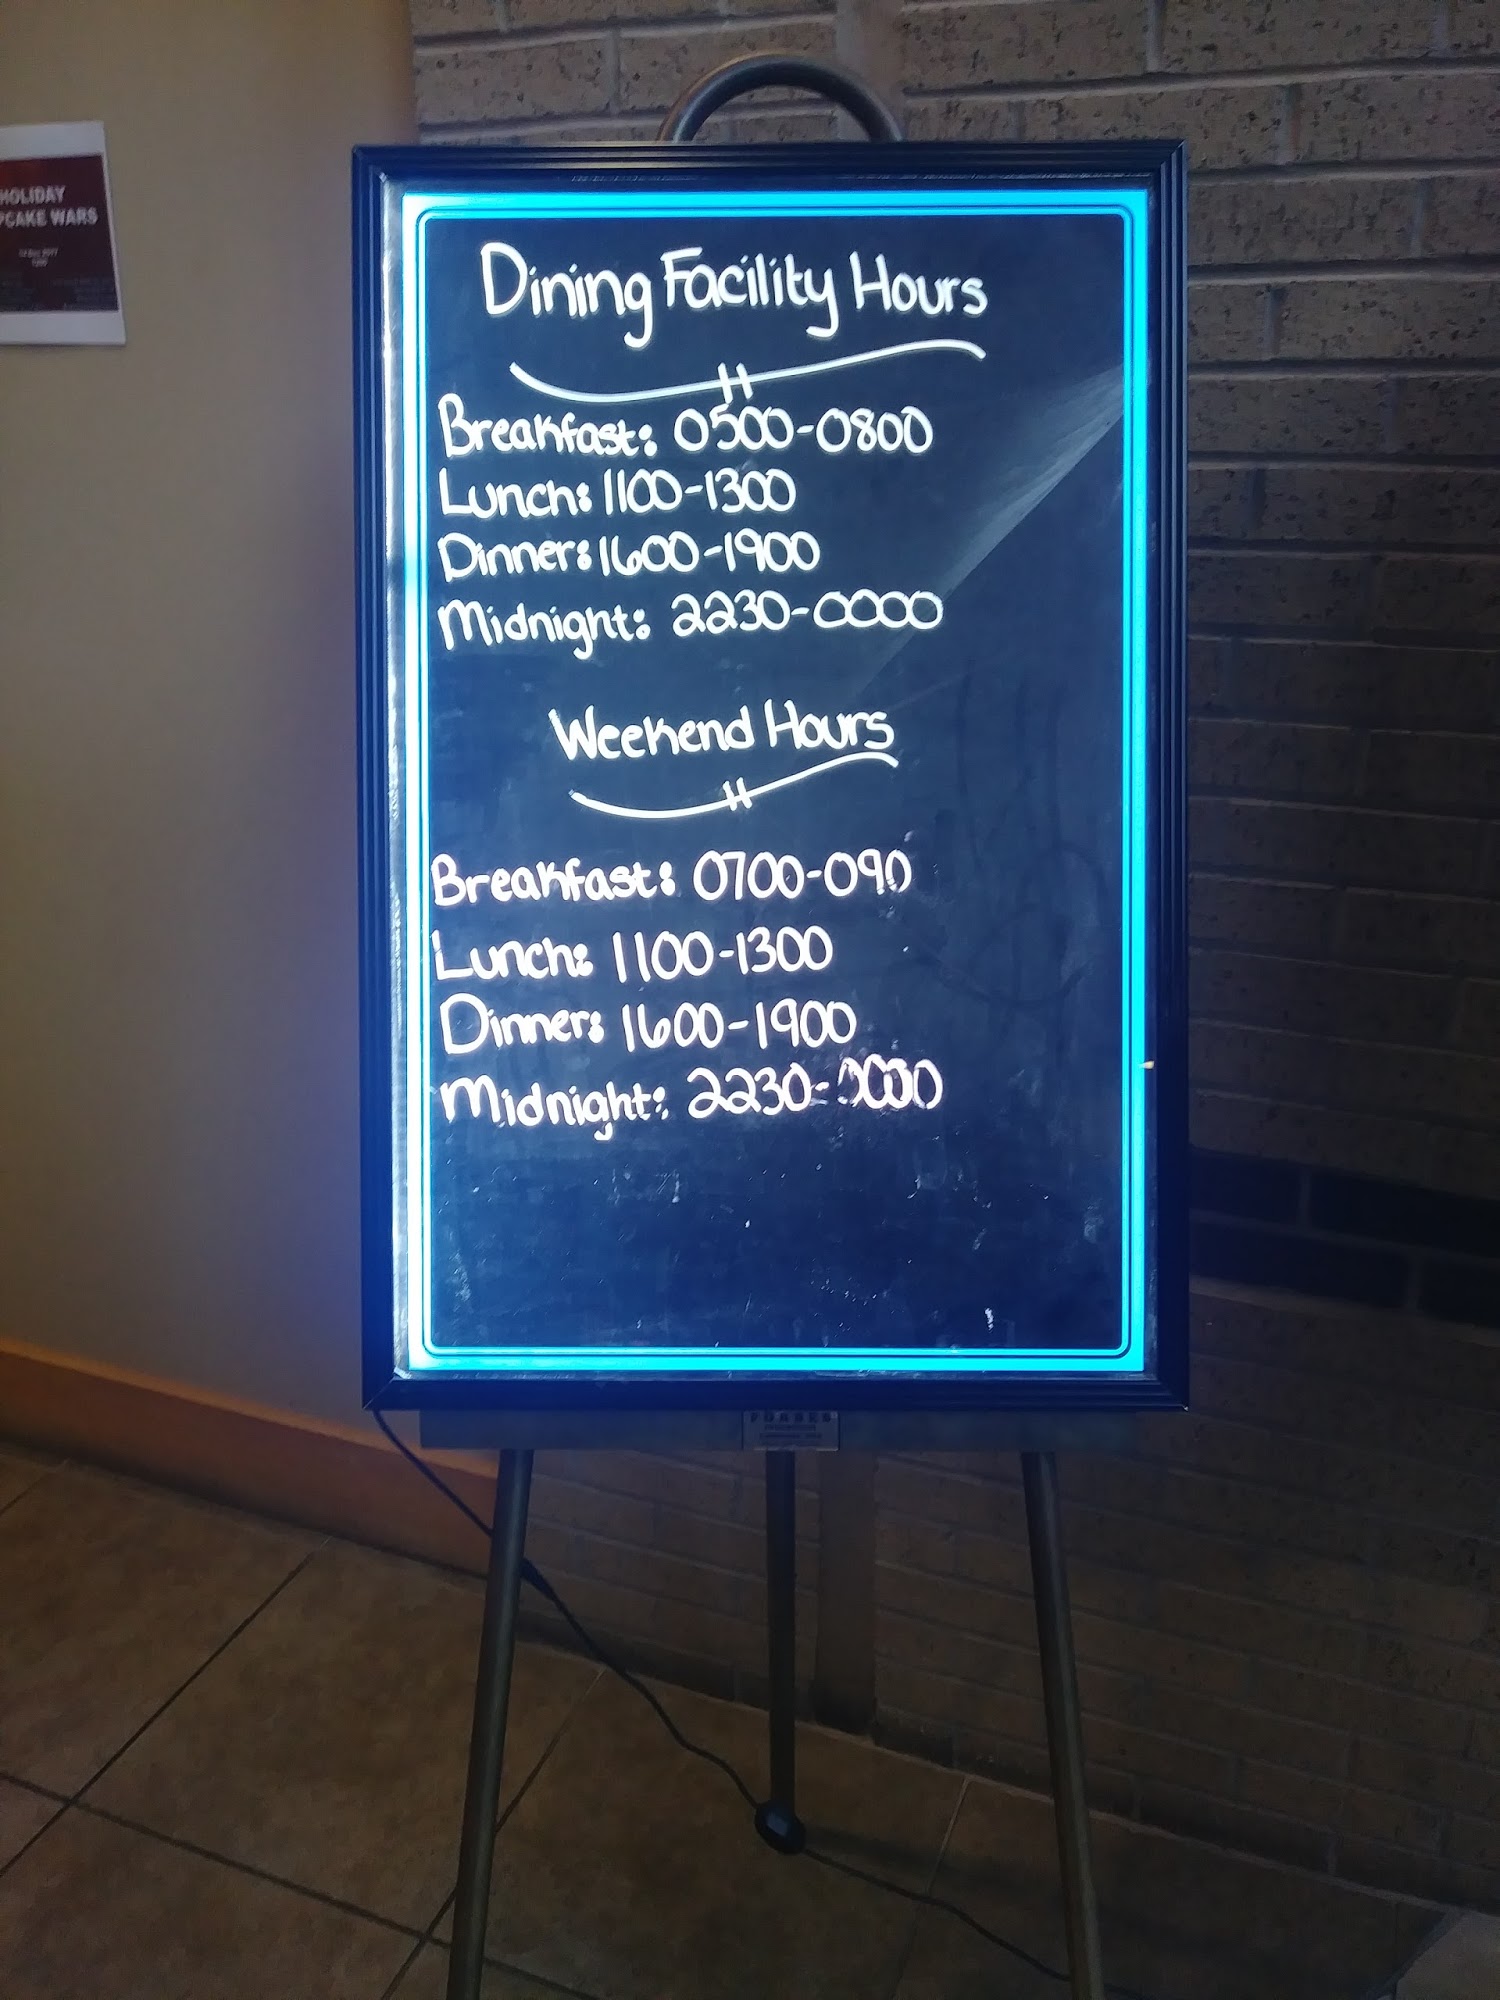 HOLIDAY
PCAKE WARS
Dining Facility Hours
Breakfast: 0500-0800
Lunch: 1100-1300
Dinner: 1600-1900
Midnight: 2230-0000
Weekend Hours
Breakfast: 0700-090
Lunch: 1100-1300
Dinner: 1600-1900
Midnight: 2230-0030